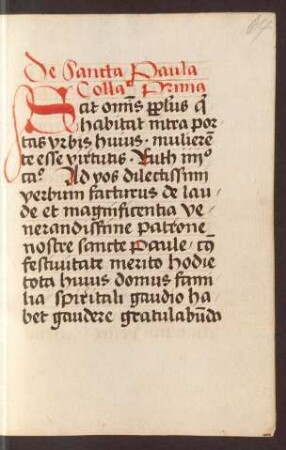 De Sancta Paula
Colla° Prima
Scit omīs pplus q̄
habitat intra por
tas vrbis huius · muliere͞
te esse virtutis · Ruth iij°
ca° Ad vos dilectissimi
verbum facturus de lau
de et magnificentia ve
nerandissime patrone
nostre sancte Paule · cū
festiuitate merito hodie
tota huius domus fami
lia spiritali gaudio ha
bet gaudere gratulabūda